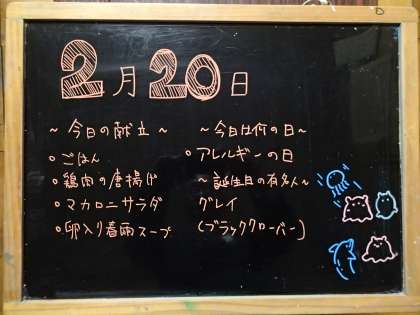 2月20日
～今日の献立～
○ごはん
○鶏肉の唐揚げ
○マカロニサラダ
○卵入り春雨スープ
～今日は何の日～
○アレルギーの日
～誕生日の有名人～
グレイ
(ブラッククローバー)